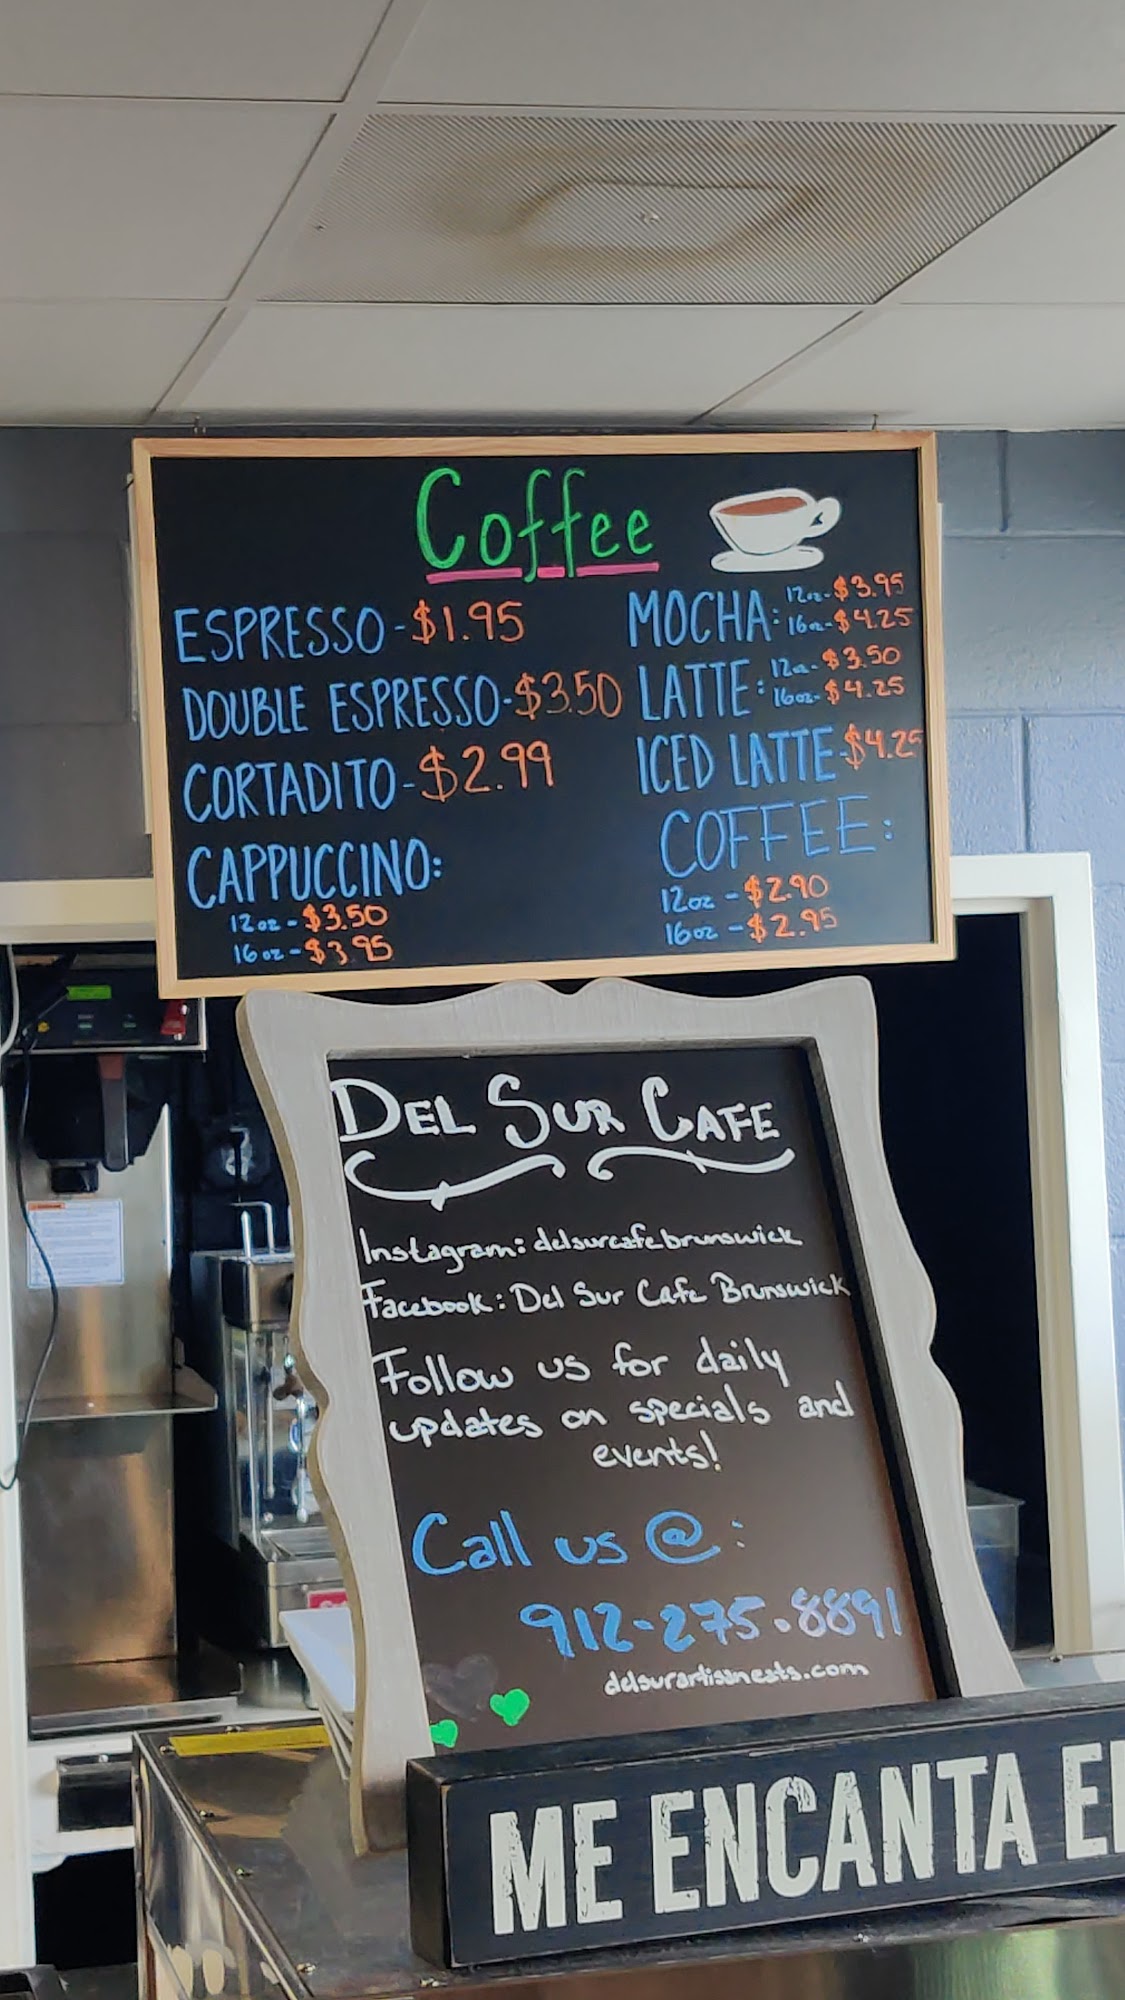 Coffee
ESPRESSO - $1.95
DOUBLE ESPRESSO - $3.50
CORTADITO - $2.99
CAPPUCCINO:
12oz - $3.50
16oz - $3.95
MOCHA: 12oz - $3.95
16oz - $4.25
LATTE: 12oz - $3.50
16oz - $4.25
ICED LATTE - $4.25
COFFEE:
12oz - $2.90
16oz - $2.95
DEL SUR CAFE
Instagram: delsurcafebrunswick
Facebook: Del Sur Cafe Brunswick
Follow us for daily
updates on specials and
events!
Call us @:
912-275-8891
delsurartisaneats.com
ME ENCANTA